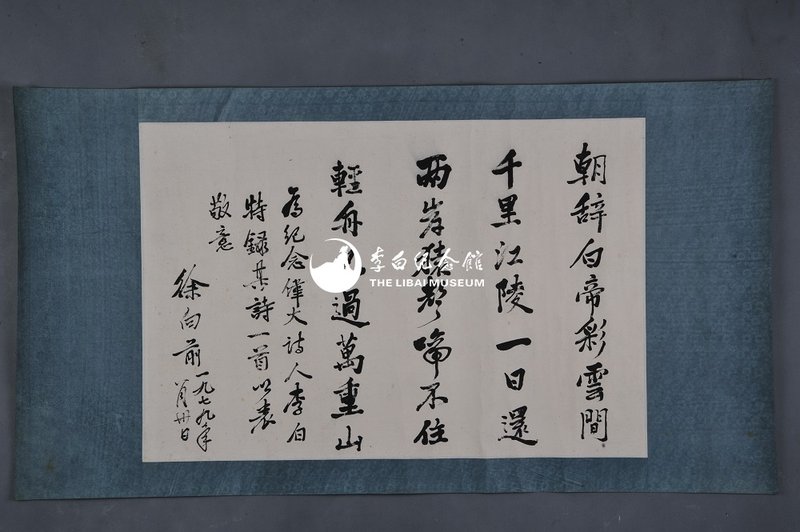 朝辞白帝彩雲間
千里江陵一日還
兩岸猿聲啼不住
輕舟過萬重山
為紀念偉大詩人李白
特録其詩一首以表
敬意
徐向前
一九七九年
月卅日
李白纪念館
THE LIBAI MUSEUM